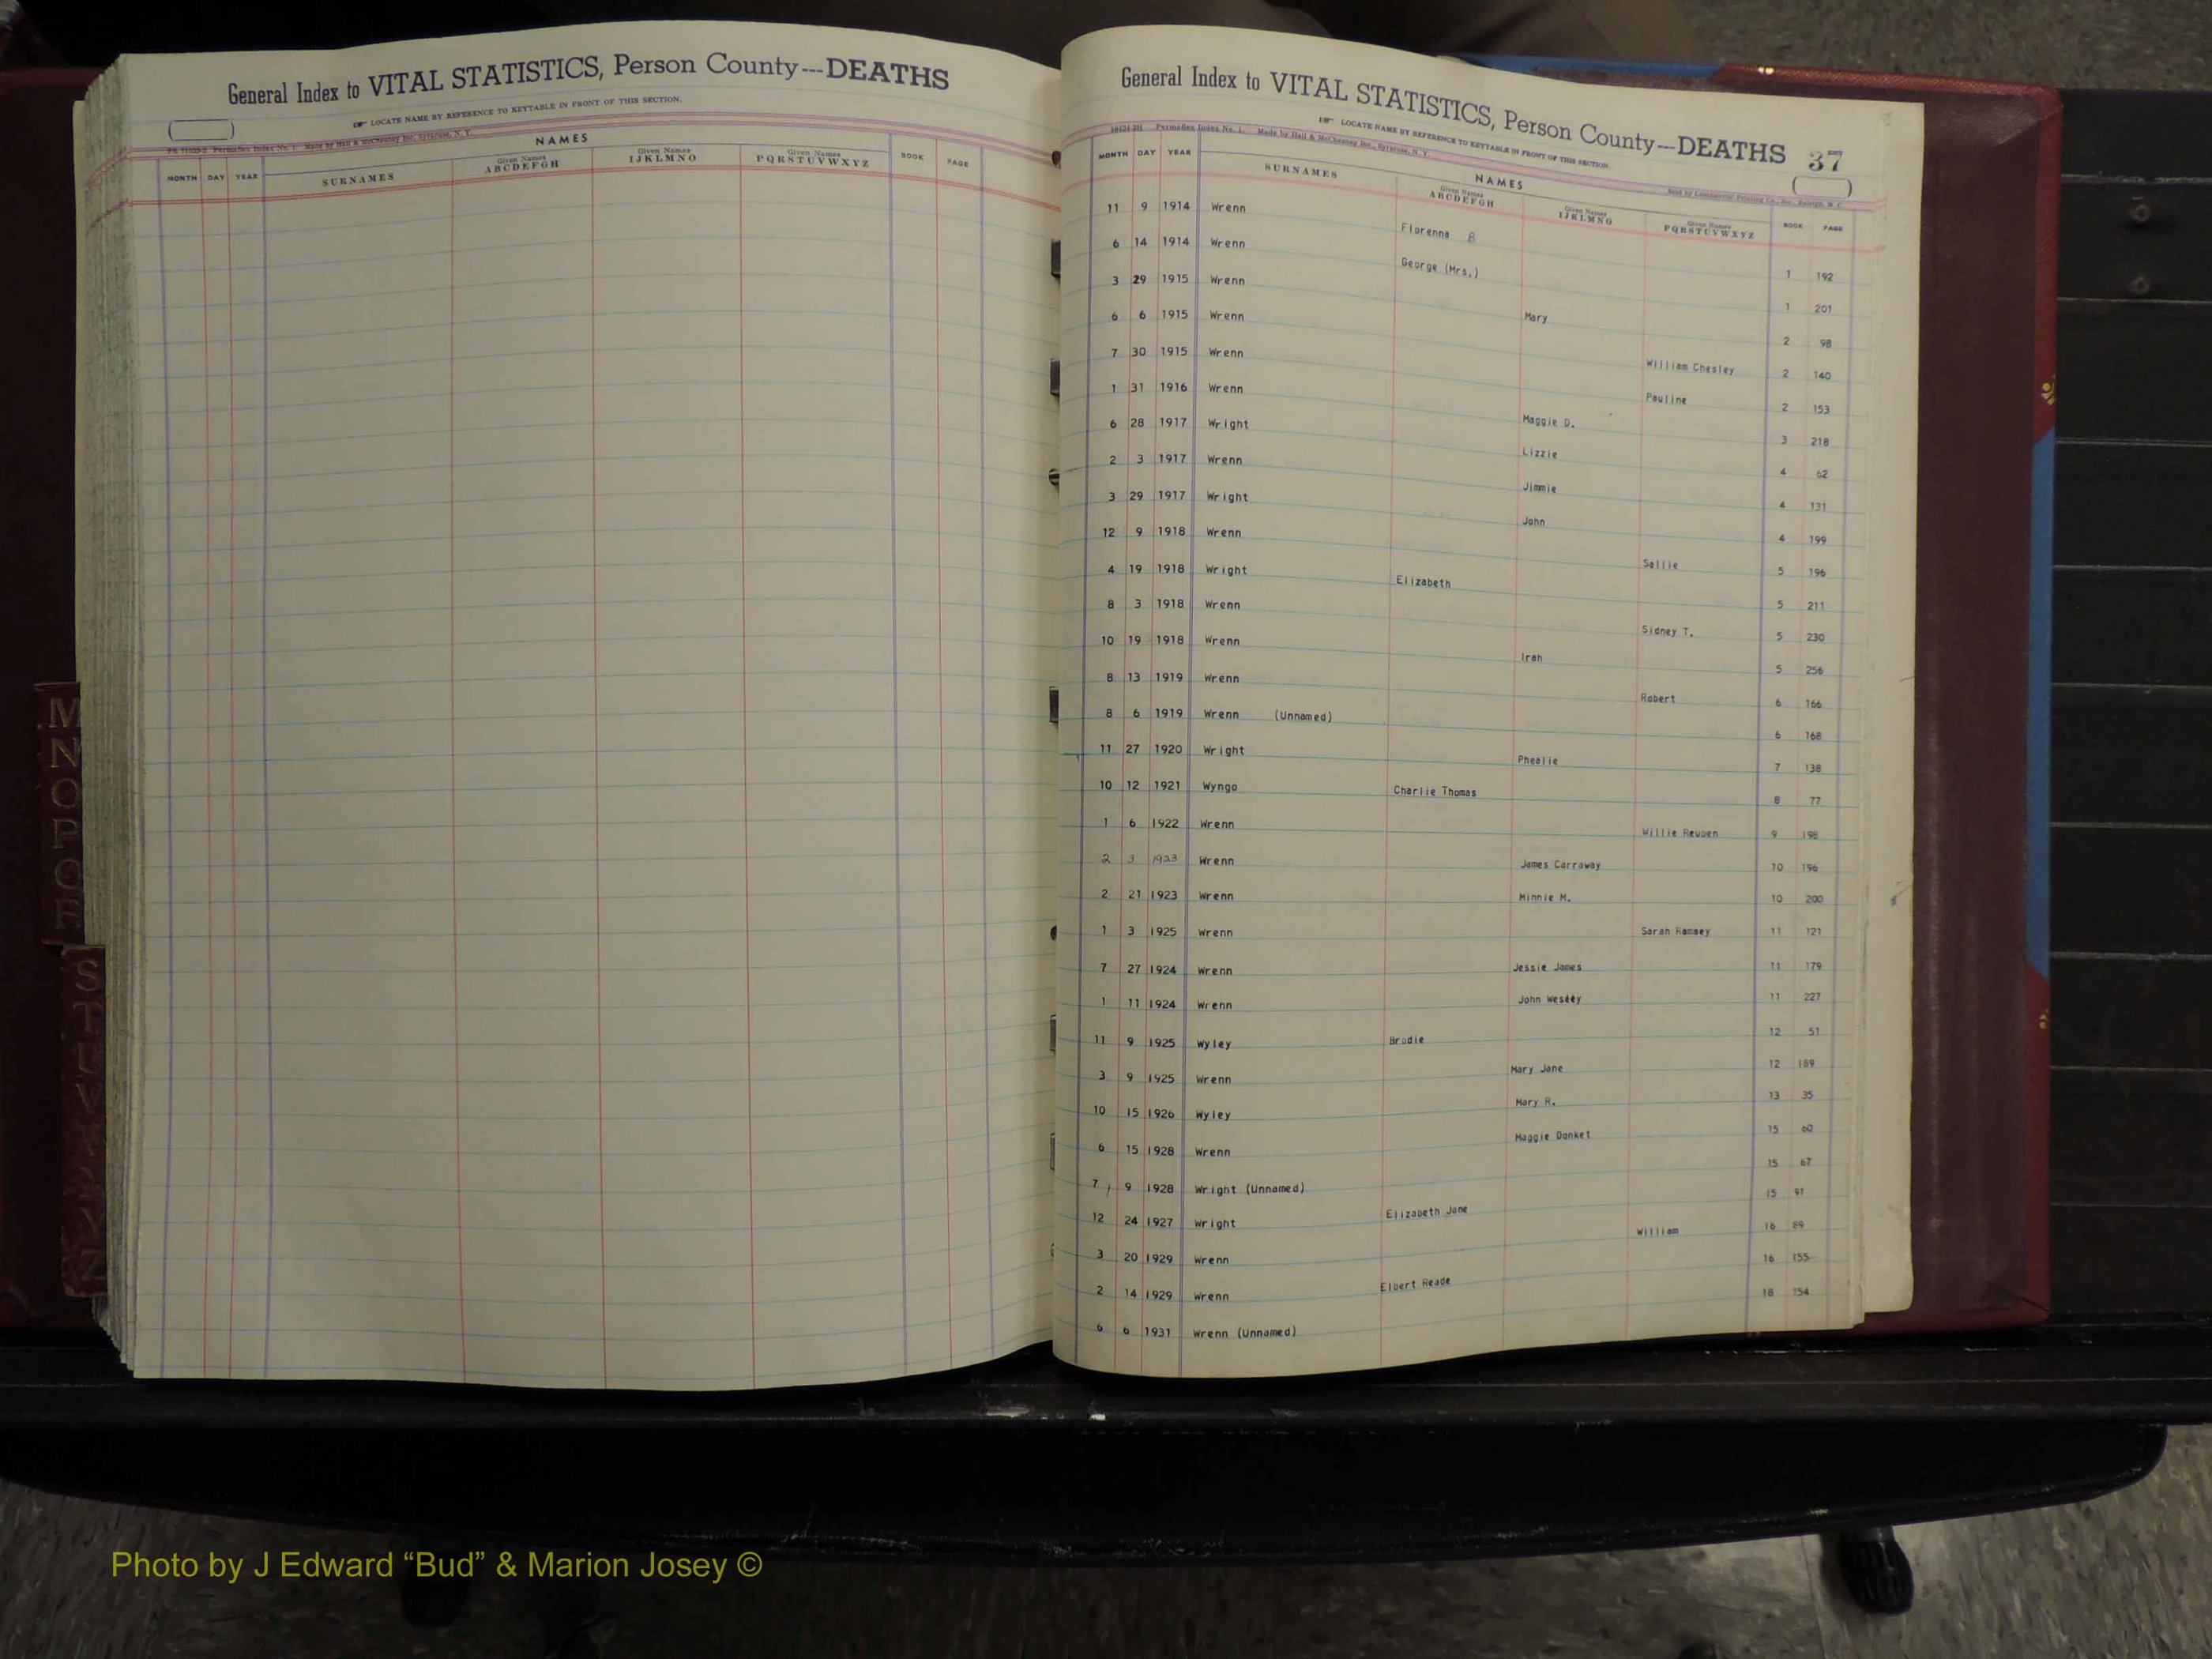 General Index to VITAL STATISTICS, Person County---DEATHS
LOCATE NAME BY REFERENCE TO KEYTABLE IN FRONT OF THIS SECTION.
Permaflex Index No. 1. Made by Hall & McChesney Inc. Syracuse, N. Y.
NAMES
MONTH DAY YEAR SURNAMES Given Names ABCDEFGH Given Names IJKLMNO Given Names PQRSTUVWXYZ BOOK PAGE
M
N
O
P
Q
R
S
T
U
V
Z
General Index to VITAL STATISTICS, Person County---DEATHS 37
LOCATE NAME BY REFERENCE TO KEYTABLE IN FRONT OF THIS SECTION.
Permaflex Index No. 1. Made by Hall & McChesney Inc., Syracuse, N. Y. Sold by Commercial Printing Co., Inc., Raleigh, N. C.
NAMES
MONTH DAY YEAR SURNAMES Given Names ABCDEFGH Given Names IJKLMNO Given Names PQRSTUVWXYZ BOOK PAGE
11 9 1914 Wrenn Florenna B 1 192
6 14 1914 Wrenn George (Mrs.) 1 201
3 29 1915 Wrenn Mary 2 98
6 6 1915 Wrenn William Chesley 2 140
7 30 1915 Wrenn Pauline 2 153
1 31 1916 Wrenn Maggie D. 3 218
6 28 1917 Wright Lizzie 4 62
2 3 1917 Wrenn Jimmie 4 131
3 29 1917 Wright John 4 199
12 9 1918 Wrenn Sallie 5 196
4 19 1918 Wright Elizabeth 5 211
8 3 1918 Wrenn Sidney T. 5 230
10 19 1918 Wrenn Irah 5 256
8 13 1919 Wrenn Robert 6 166
8 6 1919 Wrenn (Unnamed) 6 168
11 27 1920 Wright Phealie 7 138
10 12 1921 Wyngo Charlie Thomas 8 77
1 6 1922 Wrenn Willie Reuben 9 198
2 3 1923 Wrenn James Carraway 10 196
2 21 1923 Wrenn Minnie M. 10 200
1 3 1925 Wrenn Sarah Ramsey 11 121
7 27 1924 Wrenn Jessie James 11 179
1 11 1924 Wrenn John Wesley 11 227
11 9 1925 Wyley Brodie 12 51
3 9 1925 Wrenn Mary Jane 12 189
10 15 1926 Wyley Mary R. 13 35
6 15 1928 Wrenn Maggie Donket 15 60
7 9 1928 Wright (Unnamed) 15 67
12 24 1927 Wright Elizabeth Jane 15 91
3 20 1929 Wrenn William 16 89
2 14 1929 Wrenn Elbert Reade 16 155
6 6 1931 Wrenn (Unnamed) 18 154
Photo by J Edward “Bud” & Marion Josey ©